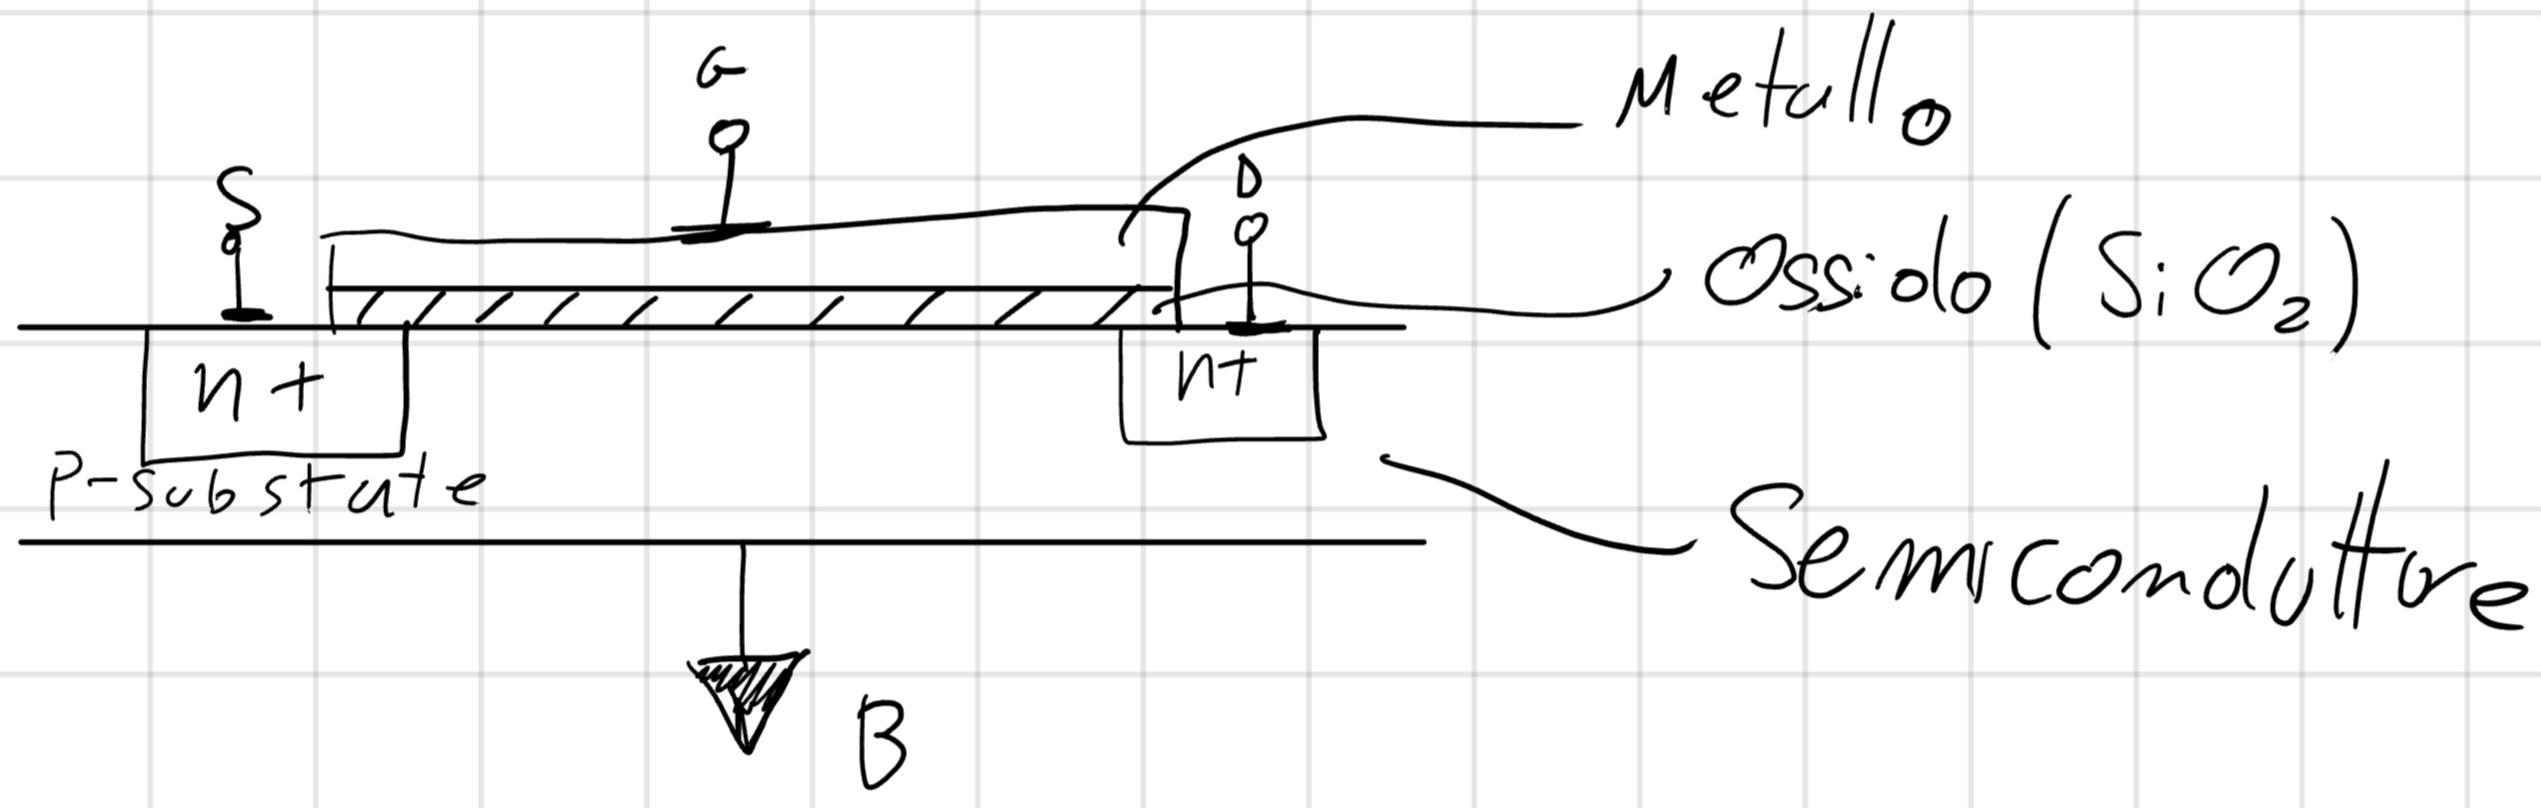 G
Metallo
S
D
Ossido (SiO2)
n+
n+
P-substrate
Semiconduttore
B